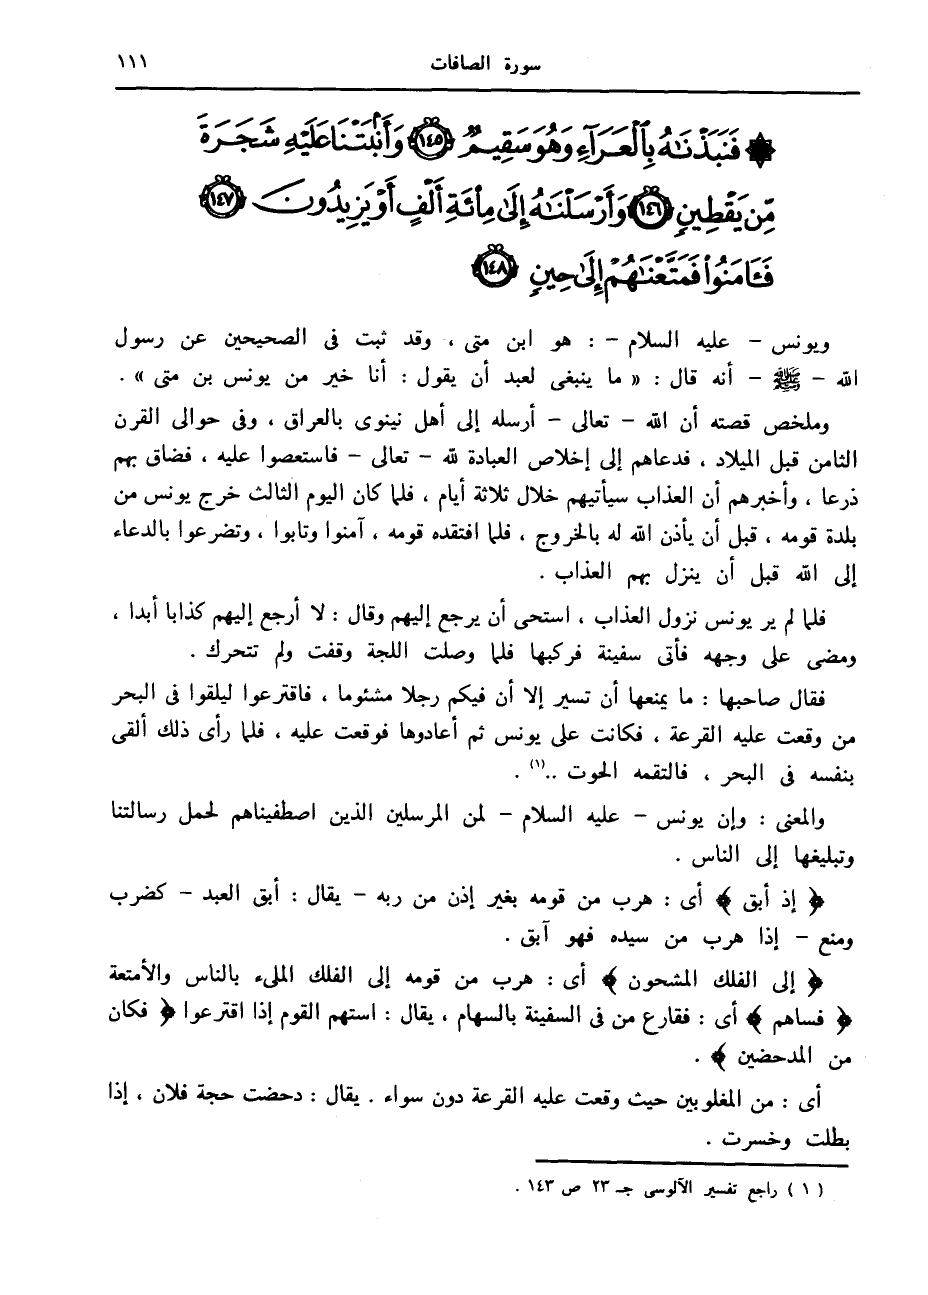 سورة الصافات ١١١
۞ فَنَبَذْنَٰهُ بِٱلْعَرَآءِ وَهُوَ سَقِيمٌ ١٤٥ وَأَنۢبَتْنَا عَلَيْهِ شَجَرَةً
مِّن يَقْطِينٍ ١٤٦ وَأَرْسَلْنَٰهُ إِلَىٰ مِا۟ئَةِ أَلْفٍ أَوْ يَزِيدُونَ ١٤٧
فَـَٔامَنُوا۟ فَمَتَّعْنَٰهُمْ إِلَىٰ حِينٍ ١٤٨
ويونس - عليه السلام - : هو ابن متى ، وقد ثبت فى الصحيحين عن رسول
الله - ﷺ - أنه قال : « ما ينبغى لعبد أن يقول : أنا خير من يونس بن متى » .
وملخص قصته أن الله - تعالى - أرسله إلى أهل نينوى بالعراق ، وفى حوالى القرن
الثامن قبل الميلاد ، فدعاهم إلى إخلاص العبادة لله - تعالى - فاستعصوا عليه ، فضاق بهم
ذرعا ، وأخبرهم أن العذاب سيأتيهم خلال ثلاثة أيام ، فلما كان اليوم الثالث خرج يونس من
بلدة قومه ، قبل أن يأذن الله له بالخروج ، فلما افتقده قومه ، آمنوا وتابوا ، وتضرعوا بالدعاء
إلى الله قبل أن ينزل بهم العذاب .
فلما لم ير يونس نزول العذاب ، استحى أن يرجع إليهم وقال : لا أرجع إليهم كذابا أبدا ،
ومضى على وجهه فأتى سفينة فركبها فلما وصلت اللجة وقفت ولم تتحرك .
فقال صاحبها : ما يمنعها أن تسير إلا أن فيكم رجلا مشئوما ، فاقترعوا ليلقوا فى البحر
من وقعت عليه القرعة ، فكانت على يونس ثم أعادوها فوقعت عليه ، فلما رأى ذلك ألقى
بنفسه فى البحر ، فالتقمه الحوت .. (١) .
والمعنى : وإن يونس - عليه السلام - لمن المرسلين الذين اصطفيناهم لحمل رسالتنا
وتبليغها إلى الناس .
﴿ إذ أبق ﴾ أى : هرب من قومه بغير إذن من ربه - يقال : أبق العبد - كضرب
ومنع - إذا هرب من سيده فهو آبق .
﴿ إلى الفلك المشحون ﴾ أى : هرب من قومه إلى الفلك الملىء بالناس والأمتعة
﴿ فساهم ﴾ أى : فقارع من فى السفينة بالسهام ، يقال : استهم القوم إذا اقترعوا ﴿ فكان
من المدحضين ﴾ .
أى : من المغلوبين حيث وقعت عليه القرعة دون سواء . يقال : دحضت حجة فلان ، إذا
بطلت وخسرت .
( ١ ) راجع تفسير الآلوسى جـ ٢٣ ص ١٤٣ .